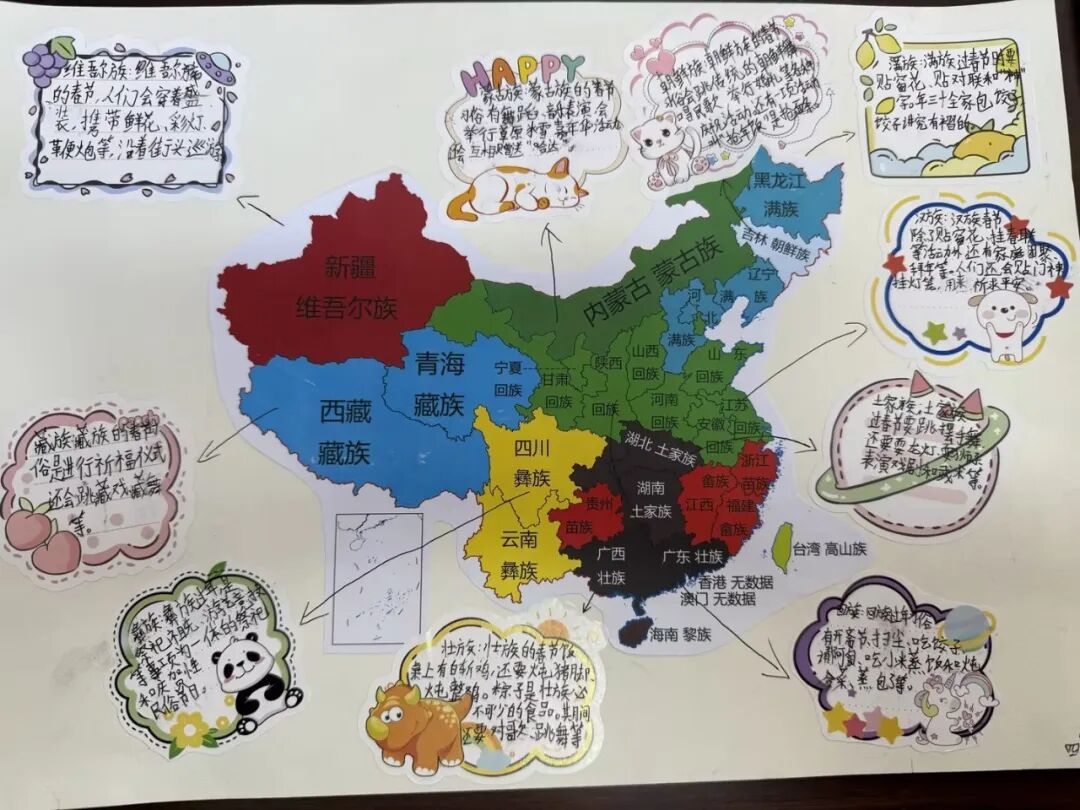 维吾尔族:维吾尔族
的春节,人们会穿着盛
装,携带鲜花、彩灯、
鞭炮等,沿着街头巡游
HAPPY
蒙古族:蒙古族的春节
习俗有舞蹈、
举行草原冰雪嘉年华活动
互相赠送"哈达"
朝鲜族:朝鲜族的春节
习俗是跳传统的朝鲜舞
唱歌,举行
活动,还有
满族:满族过春节时要
贴窗花、贴对联和"福"
字。年三十全家包饺子
饺子讲究有褶的
汉族:汉族春节
除了贴窗花、挂春联
等活动外,还有家庭团聚
拜年等。人们还会贴门神
挂灯笼,用来祈求平安。
土家族:土家族
过春节要跳摆手舞
还要耍龙灯
表演戏
回族:回族过年习俗
有开斋节、扫尘、吃饺子
吃小米蒸饭和炖
蒸包子等。
壮族:壮族的春节饭
桌上有白斩鸡,还要炖猪脚、
炖整鸡。粽子是壮族必
不可少的食品。其间
还要对歌、跳舞等
彝族:彝族过年是
祭祀
体的祭祀
等事项为
和庆贺加
习俗节日。
藏族:藏族的春节习
俗是进行祈福仪式
还会跳藏戏藏舞
等。
黑龙江
满族
吉林 朝鲜族
辽宁
满 族
内蒙古 蒙古族
新疆
维吾尔族
河
北
满族
青海
藏族
宁夏
回族
甘肃
回族
陕西
回族
山西
回族
山 东
回族
西藏
藏族
河南
回族
江苏
回族
安徽
回族
四川
彝族
湖北 土家族
浙江
畲族
湖南
土家族
贵州
苗族
江西
畲族
苗族
福建
畲族
云南
彝族
广西
壮族
广东 壮族
台湾 高山族
香港 无数据
澳门 无数据
海南 黎族